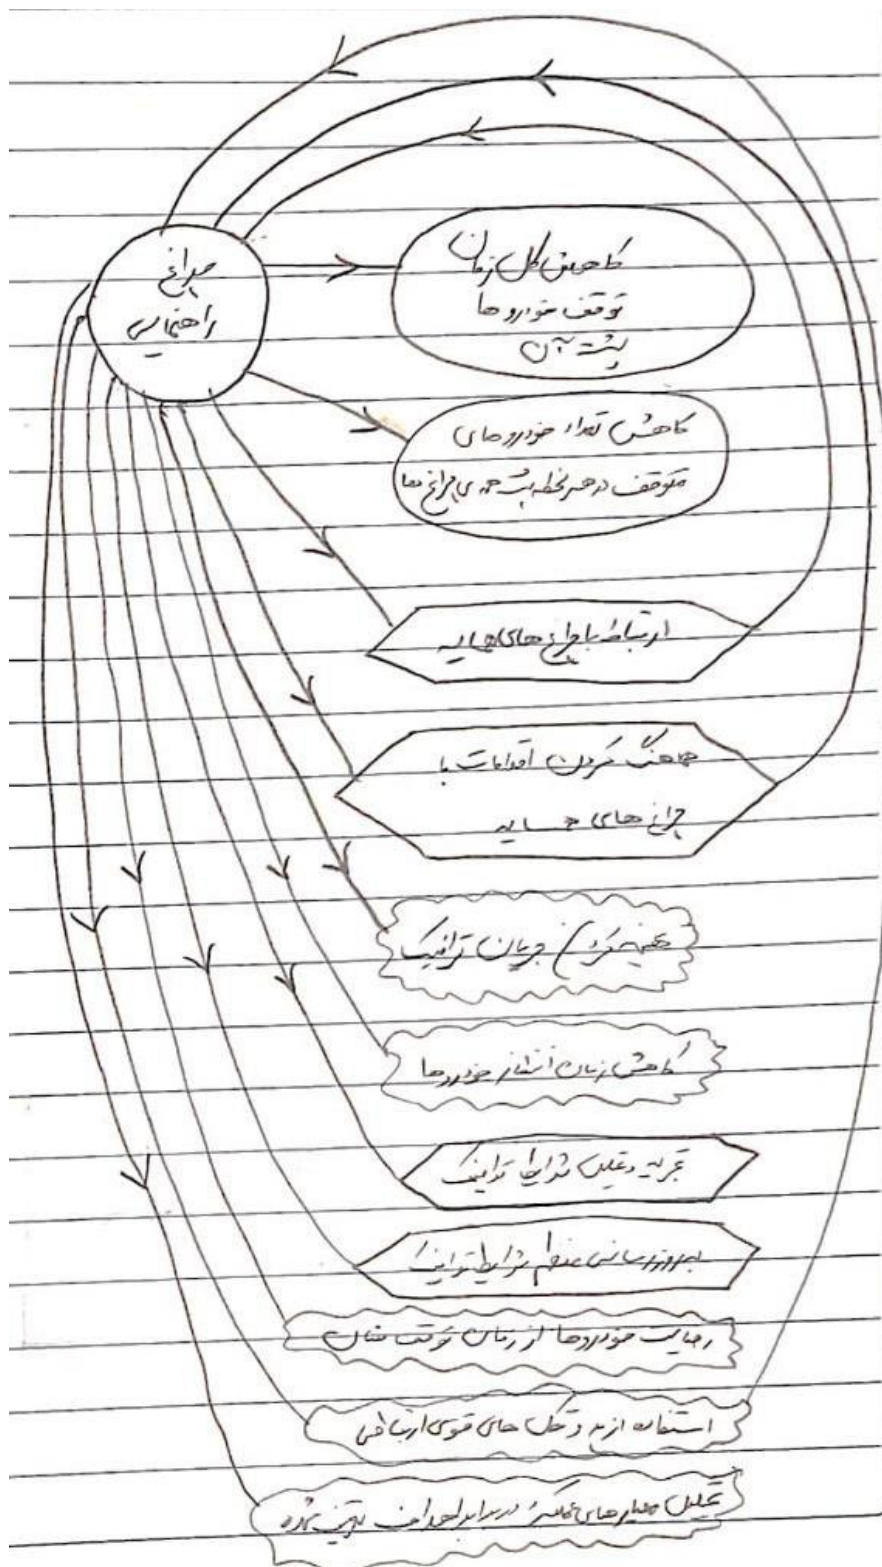 چراغ
راهنمایی
کاهش کل زمان
توقف خودرو ها
پشت آن
کاهش تعداد خودروهای
متوقف در هر لحظه پشت همه ی چراغ ها
ارتباط با چراغ های همسایه
هماهنگ کردن اقدامات با
چراغ های همسایه
بهینه کردن جریان ترافیک
کاهش زمان انتظار خودروها
تجزیه و تحلیل شرایط ترافیک
به روز رسانی منظم شرایط ترافیک
رضایت خودروها از زمان توقف شان
استفاده از پروتکل های قوی ارتباطی
تحلیل معیارهای عملکرد در برابر اهداف تعیین شده